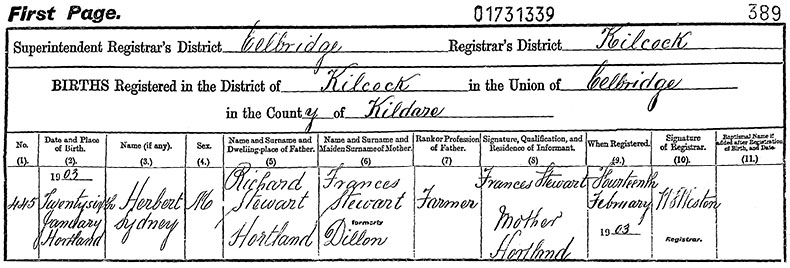 First Page. 01731339 389
Superintendent Registrar's District Celbridge Registrar's District Kilcock
BIRTHS Registered in the District of Kilcock in the Union of Celbridge
in the County of Kildare
No. Date and Place of Birth. Name (if any). Sex. Name and Surname and Dwelling-place of Father. Name and Surname and Maiden Surname of Mother. Rank or Profession of Father. Signature, Qualification, and Residence of Informant. When Registered. Signature of Registrar. Baptismal Name if added after Registration of Birth, and Date
(1). (2). (3). (4). (5) (6) (7) (8) (9.) (10). (11.)
1903 Richard Frances Frances Stewart Fourteenth
445 Twentysixth Herbert M Stewart Stewart Farmer February
January Sydney formerly Mother 1903
Hortland Hortland Dillon Hortland Registrar.